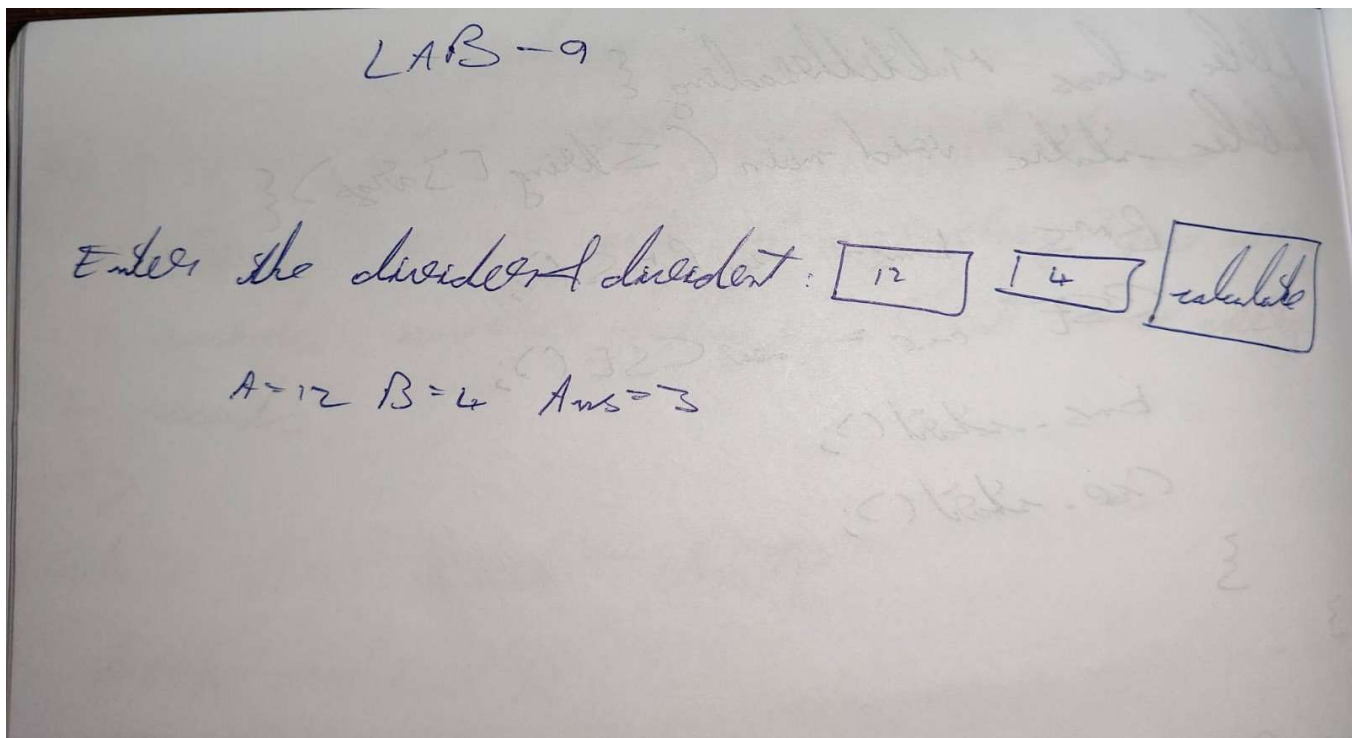 LAB-9
Enter the divider & divident: 12 4 calculate
A=12 B=4 Ans=3